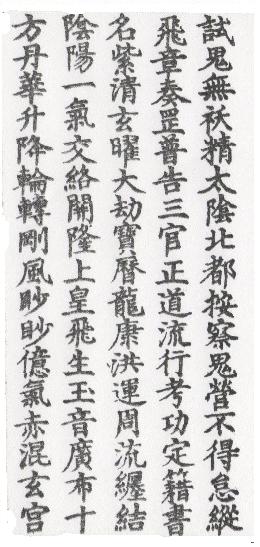 試鬼無秋精太陰北都按察鬼營不得怠縱
飛章奏罡普告三官正道流行考功定籍書
名紫清玄曜大劫寶曆龍康洪運周流纏結
陰陽一氣交絡開隆上皇飛生玉音廣布十
方丹華升降輪轉剛風眇眇億氣赤混玄宮